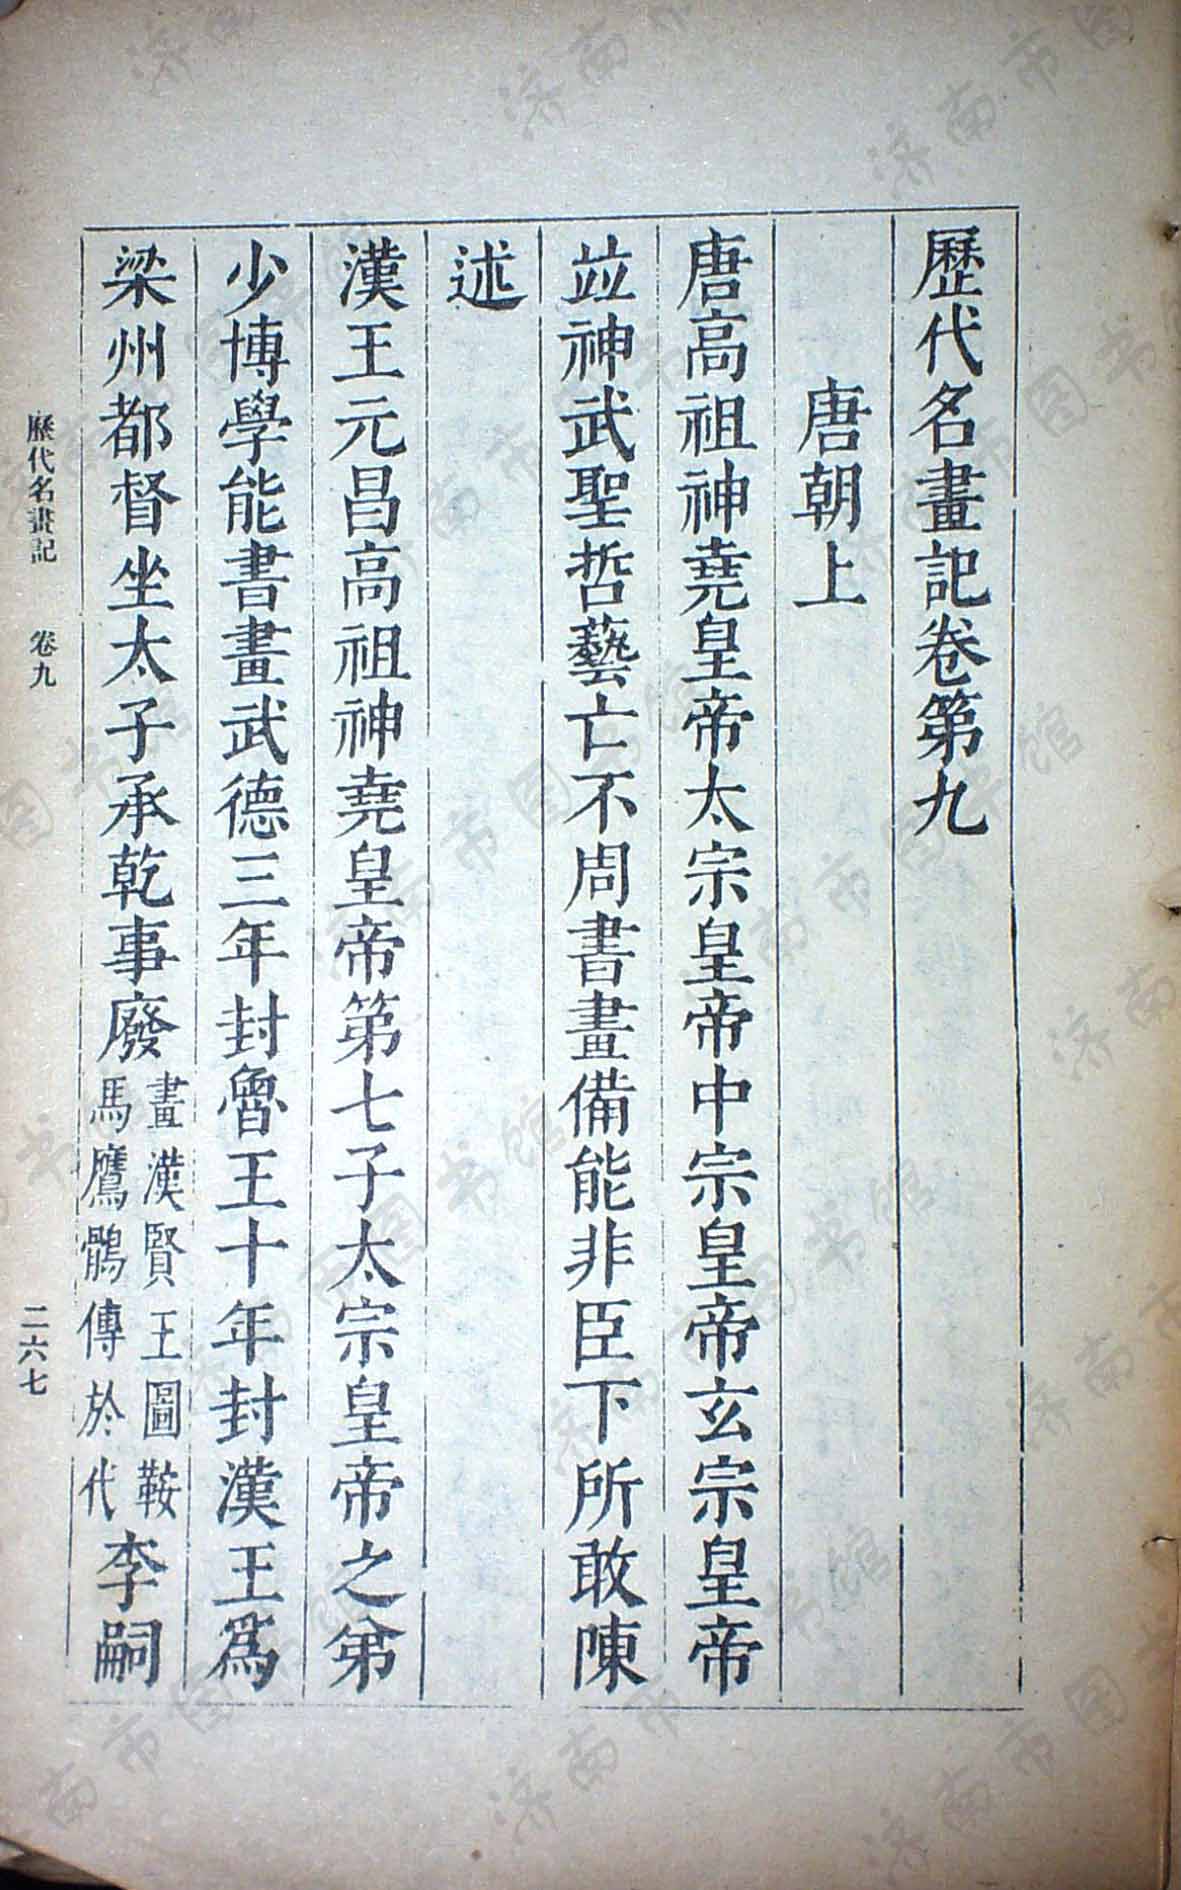 歷代名畫記卷第九
唐朝上
唐高祖神堯皇帝太宗皇帝中宗皇帝玄宗皇帝
竝神武聖哲藝亡不周書畫備能非臣下所敢陳
述
漢王元昌高祖神堯皇帝第七子太宗皇帝之弟
少博學能書畫武德三年封魯王十年封漢王爲
梁州都督坐太子承乾事廢畫漢賢王圖鞍馬鷹鶻傳於代李嗣
歷代名畫記 卷九 二六七
济南市图书馆